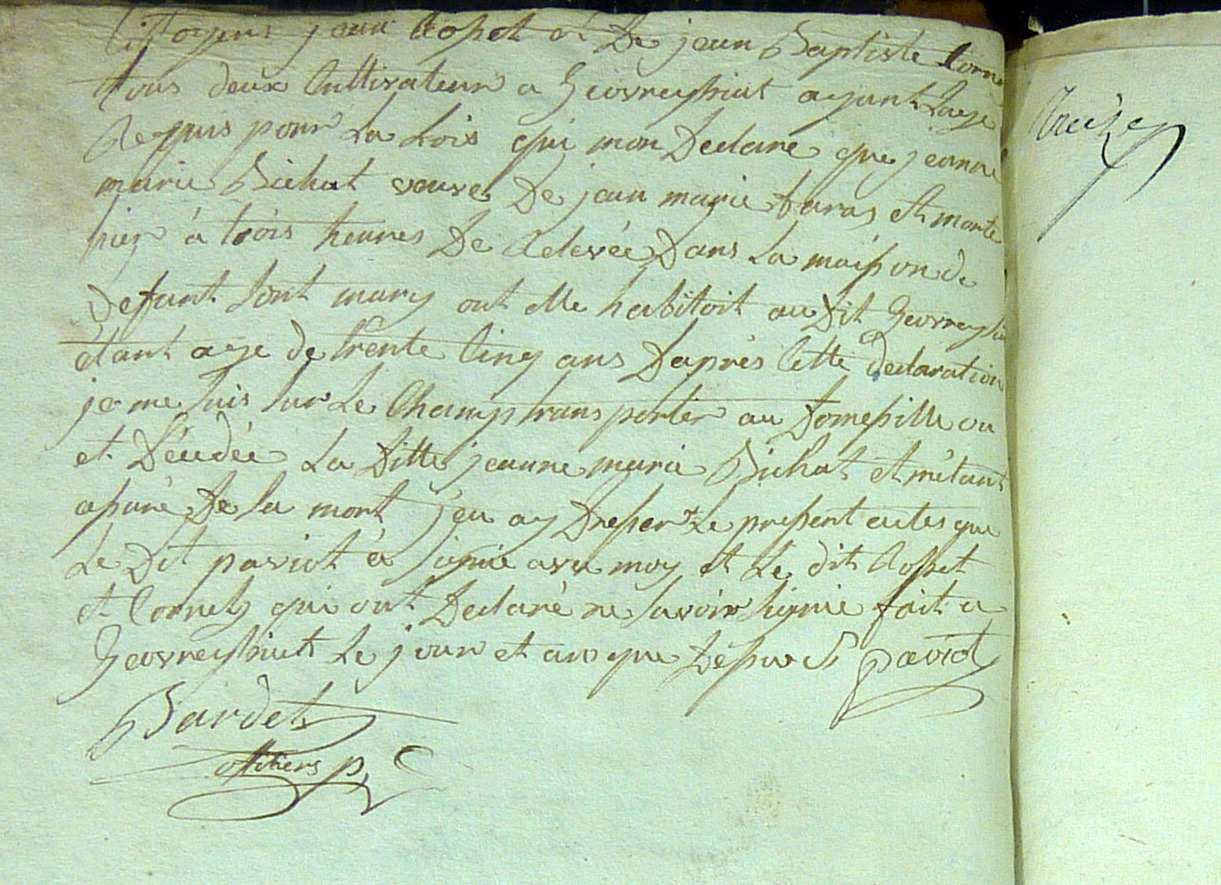 Citoyens jean Cosset et De jean Baptiste Cornet
tous deux Cultivateur a Geovreyssiat ayant Lage
Requis pour La Lois qui mon Declaré que jeanne
marie Bichat veuve De jean marie est morte
hiez à trois heures De Relevée Dans La maison de
Defunt Sont mary out elle habitoit au Dit Geovreyssia
étant age de trente Cinq ans Daprès Cette declaration
je me suis sur Le Champ transporter au Domesille ou
et Décédée La Ditte jeanne marie Bichat et métant
asuré De la mort j'en ay Dresser Le present actes que
Le Dit paviot à signié avec moy et Le dit Cosset
et Cornet qui ont Declaré ne savoir signié fait a
Geovreyssiat Le jour et an que Depuis paviot
Bardet
officiers p.
treize